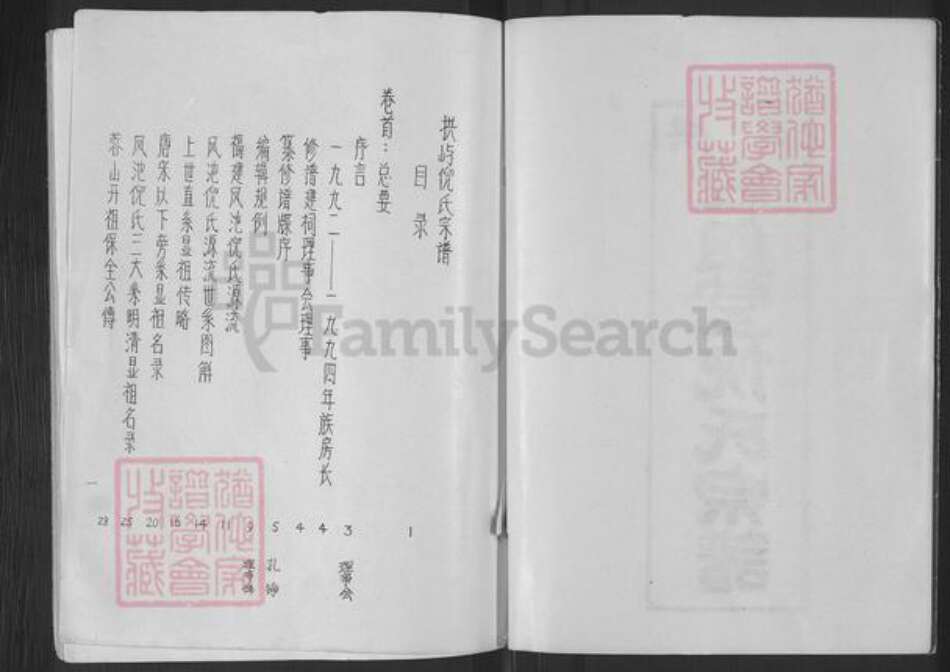 拱屿倪氏宗谱
目录
1
卷首：总要
序言 3 理事会
一九九二——一九九四年族房长 4
修谱建祠理事会理事 4
纂修谱牒序 5
编辑规例 9 理事会
福建凤池倪氏源流 11
凤池倪氏源流世系图解 14
上世直系显祖传略 16
唐宋以下旁系显祖名录 20
凤池倪氏三大系明清显祖名录 25
开祖保全公傳 28
一
FamilySearch
譜學會
收藏
譜學會
收藏